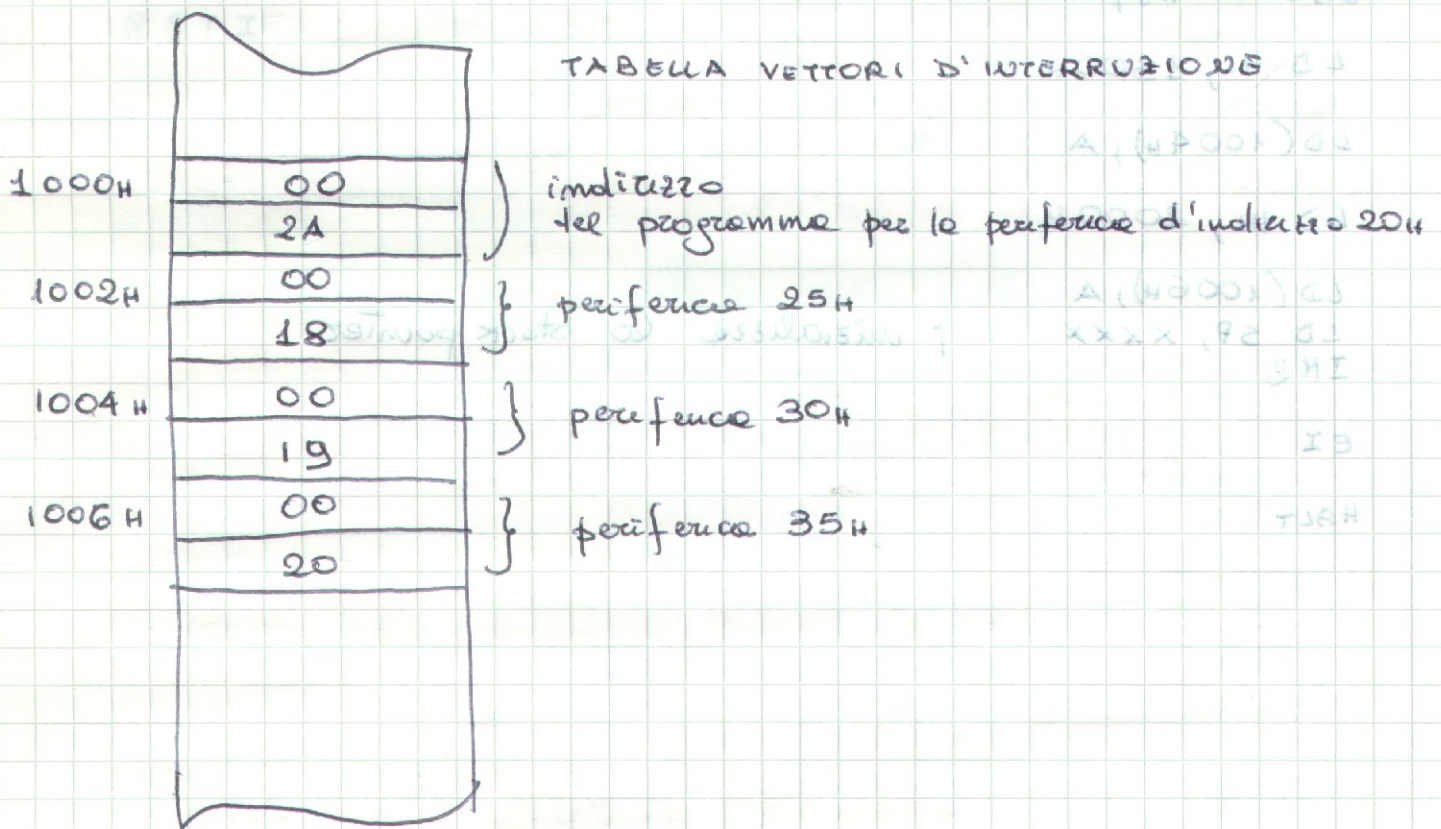 TABELLA VETTORI D'INTERRUZIONE
1000H 00 indirizzo
2A del programma per la periferica d'indirizzo 20H
1002H 00
18 periferica 25H
1004H 00
19 periferica 30H
1006H 00
20 periferica 35H